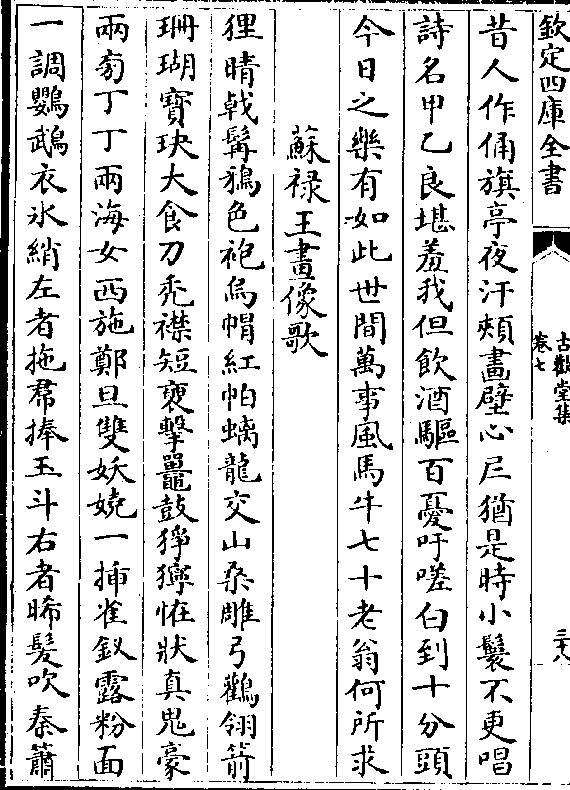 欽定四庫全書
古歡堂集
卷七
三十八
昔人作俑旗亭夜汗頰畫壁心尼猶是時小鬟不更唱
詩名甲乙良堪羞我但飲酒驅百憂吁嗟白到十分頭
今日之樂有如此世間萬事風馬牛七十老翁何所求
蘇祿王畫像歌
狸晴戟髯鴉色袍烏帽紅帕螭龍交山桑雕弓鸛翎箭
珊瑚寶玦大食刀禿襟短褎擊鼉鼓猙獰恠狀真鬼豪
兩旁丁丁兩海女西施鄭旦雙妖嬈一揷雀釵露粉面
一調鸚鵡衣氷綃左者拖帬捧玉斗右者晞髮吹秦簫